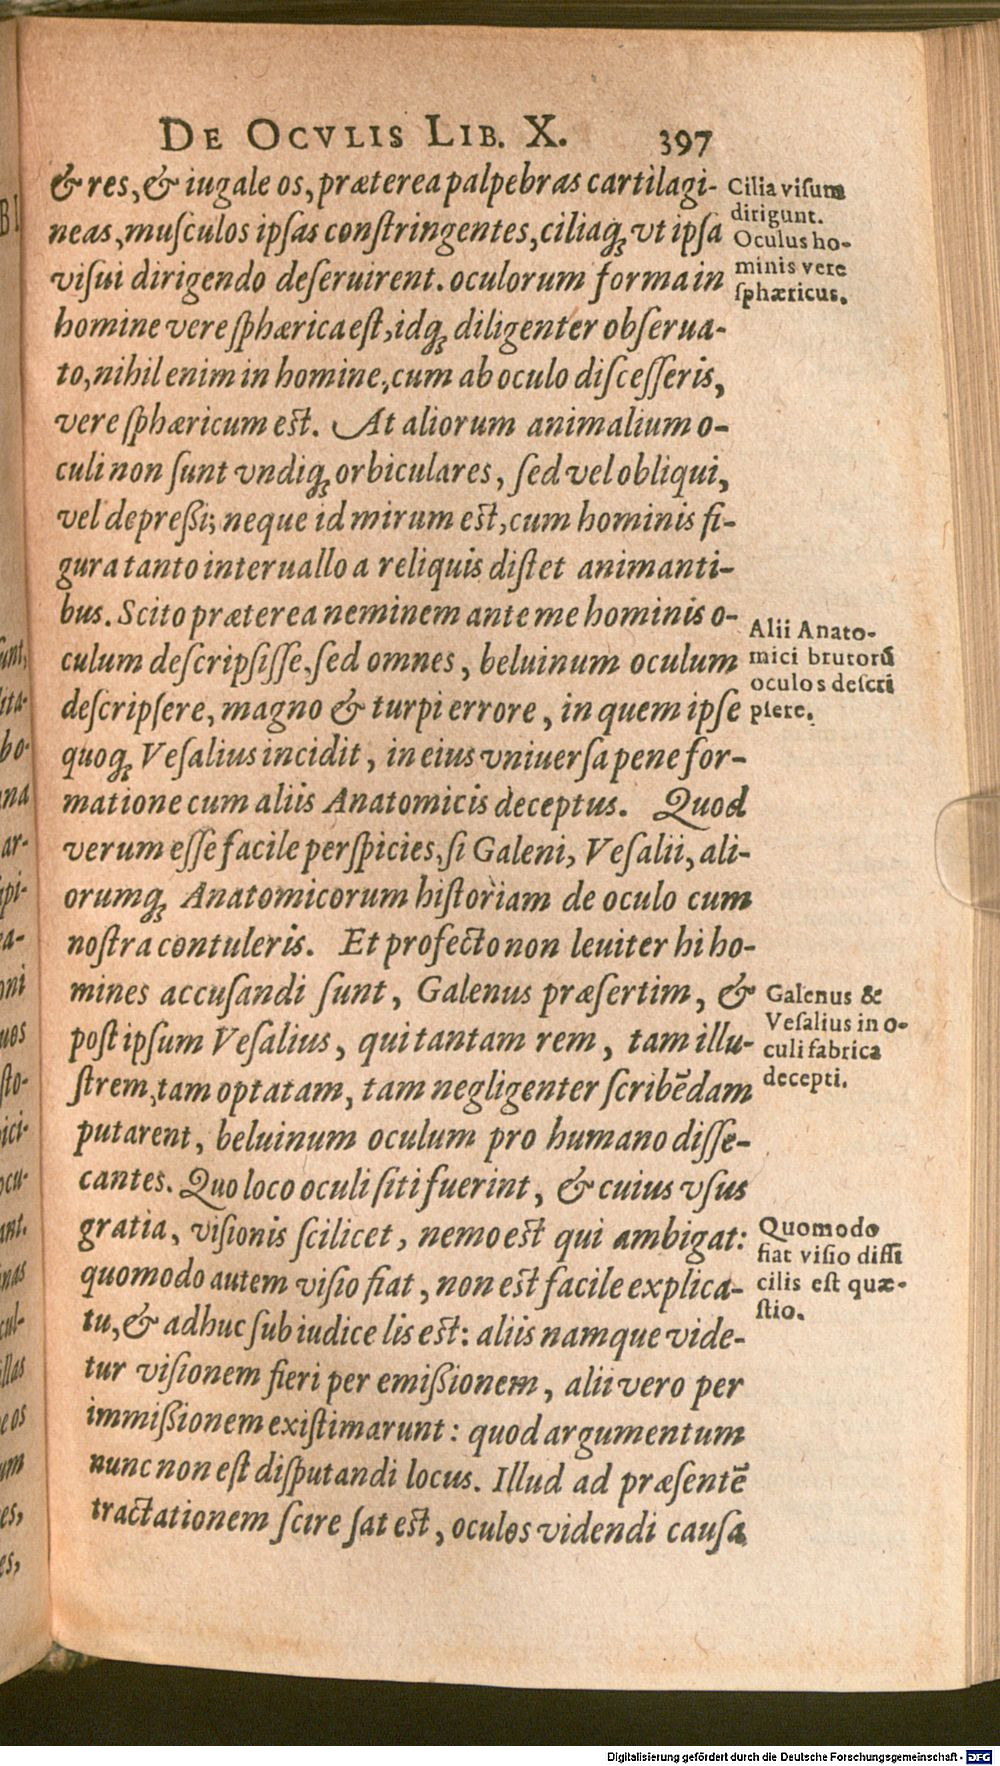 DE OCVLIS LIB. X. 397
& res, & iugale os, præterea palpebras cartilagi-
neas, muſculos ipſas conſtringentes, ciliaq́ꝫ vt ipſa
viſui dirigendo deſeruirent. oculorum forma in
homine vere ſphærica eſt, idq́ꝫ diligenter obſerua-
to, nihil enim in homine, cum ab oculo diſceſſeris,
vere ſphæricum est. At aliorum animalium o-
culi non ſunt vndiq́ꝫ orbiculares, ſed vel obliqui,
vel depreßi; neque id mirum est, cum hominis fi-
gura tanto interuallo a reliquis diſtet animanti-
bus. Scito præterea neminem ante me hominis o-
culum deſcripſiſſe, ſed omnes, beluinum oculum
deſcripſere, magno & turpi errore, in quem ipſe
quoq́ꝫ Veſalius incidit, in eius vniuerſa pene for-
matione cum aliis Anatomicis deceptus. Quod
verum eſſe facile perſpicies, ſi Galeni, Veſalii, ali-
orumq́ꝫ Anatomicorum hiſtoriam de oculo cum
noſtra contuleris. Et profecto non leuiter hi ho-
mines accuſandi ſunt, Galenus præſertim, &
poſt ipſum Veſalius, qui tantam rem, tam illu-
ſtrem, tam optatam, tam negligenter ſcribēdam
putarent, beluinum oculum pro humano diſſe-
cantes. Quo loco oculi ſiti fuerint, & cuius vſus
gratia, viſionis ſcilicet, nemo est qui ambigat:
quomodo autem viſio fiat, non est facile explica-
tu, & adhuc ſub iudice lis est: aliis namque vide-
tur viſionem fieri per emißionem, alii vero per
immißionem exiſtimarunt: quod argumentum
nunc non eſt diſputandi locus. Illud ad præſentē
tractationem ſcire ſat est, oculos videndi cauſa
Cilia viſum
dirigunt.
Oculus ho-
minis vere
ſphæricus.
Alii Anato-
mici brutorū
oculos deſcri
pſere.
Galenus &
Veſalius in o-
culi fabrica
decepti.
Quomodo
fiat viſio diffi
cilis eſt quæ-
ſtio.
Digitalisierung gefördert durch die Deutsche Forschungsgemeinschaft - DFG